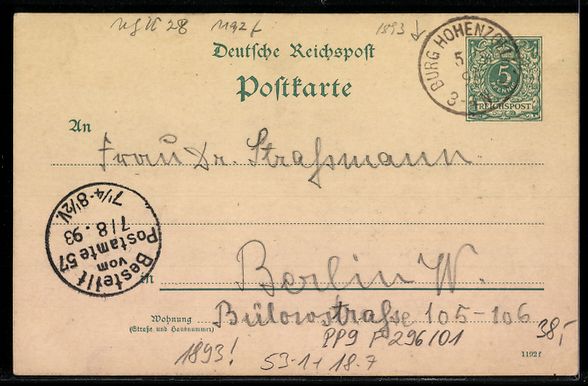 1192f
1893
Deutsche Reichspost
Postkarte
BURG HOHENZOLL
5
3-4 N
5
REICHSPOST
An
Frau Dr. Straßmann
Bestellt
vom
Postamte 57
7/8.93
7¼-8½V.
in Berlin W.
Wohnung
(Straße und Hausnummer)
Bülowstraße 105-106
PP9 F 296/01
38,-
1893!
S3-1+18.7
1192f